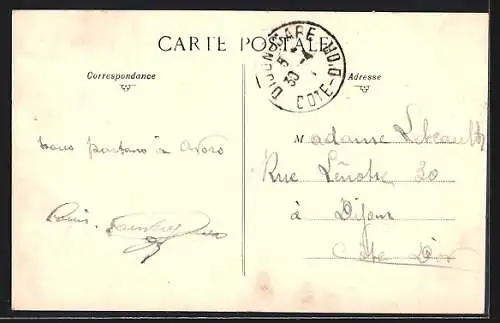 CARTE POSTALE
DIJON GARE
5
30
COTE-D'OR
Correspondance
Adresse
nous partons à
Louis.
Madame
Rue Lenôtre 30
à Dijon
Côte D'or